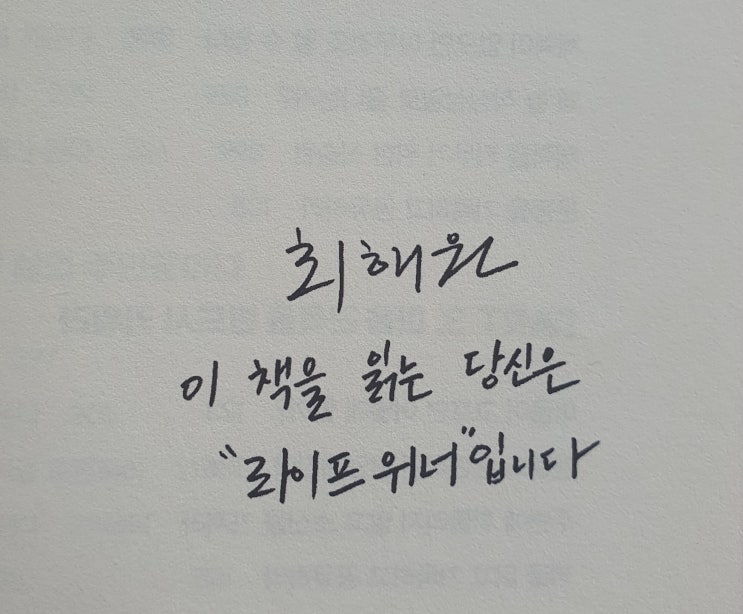 최해원
이 책을 읽는 당신은
"라이프 위너"입니다